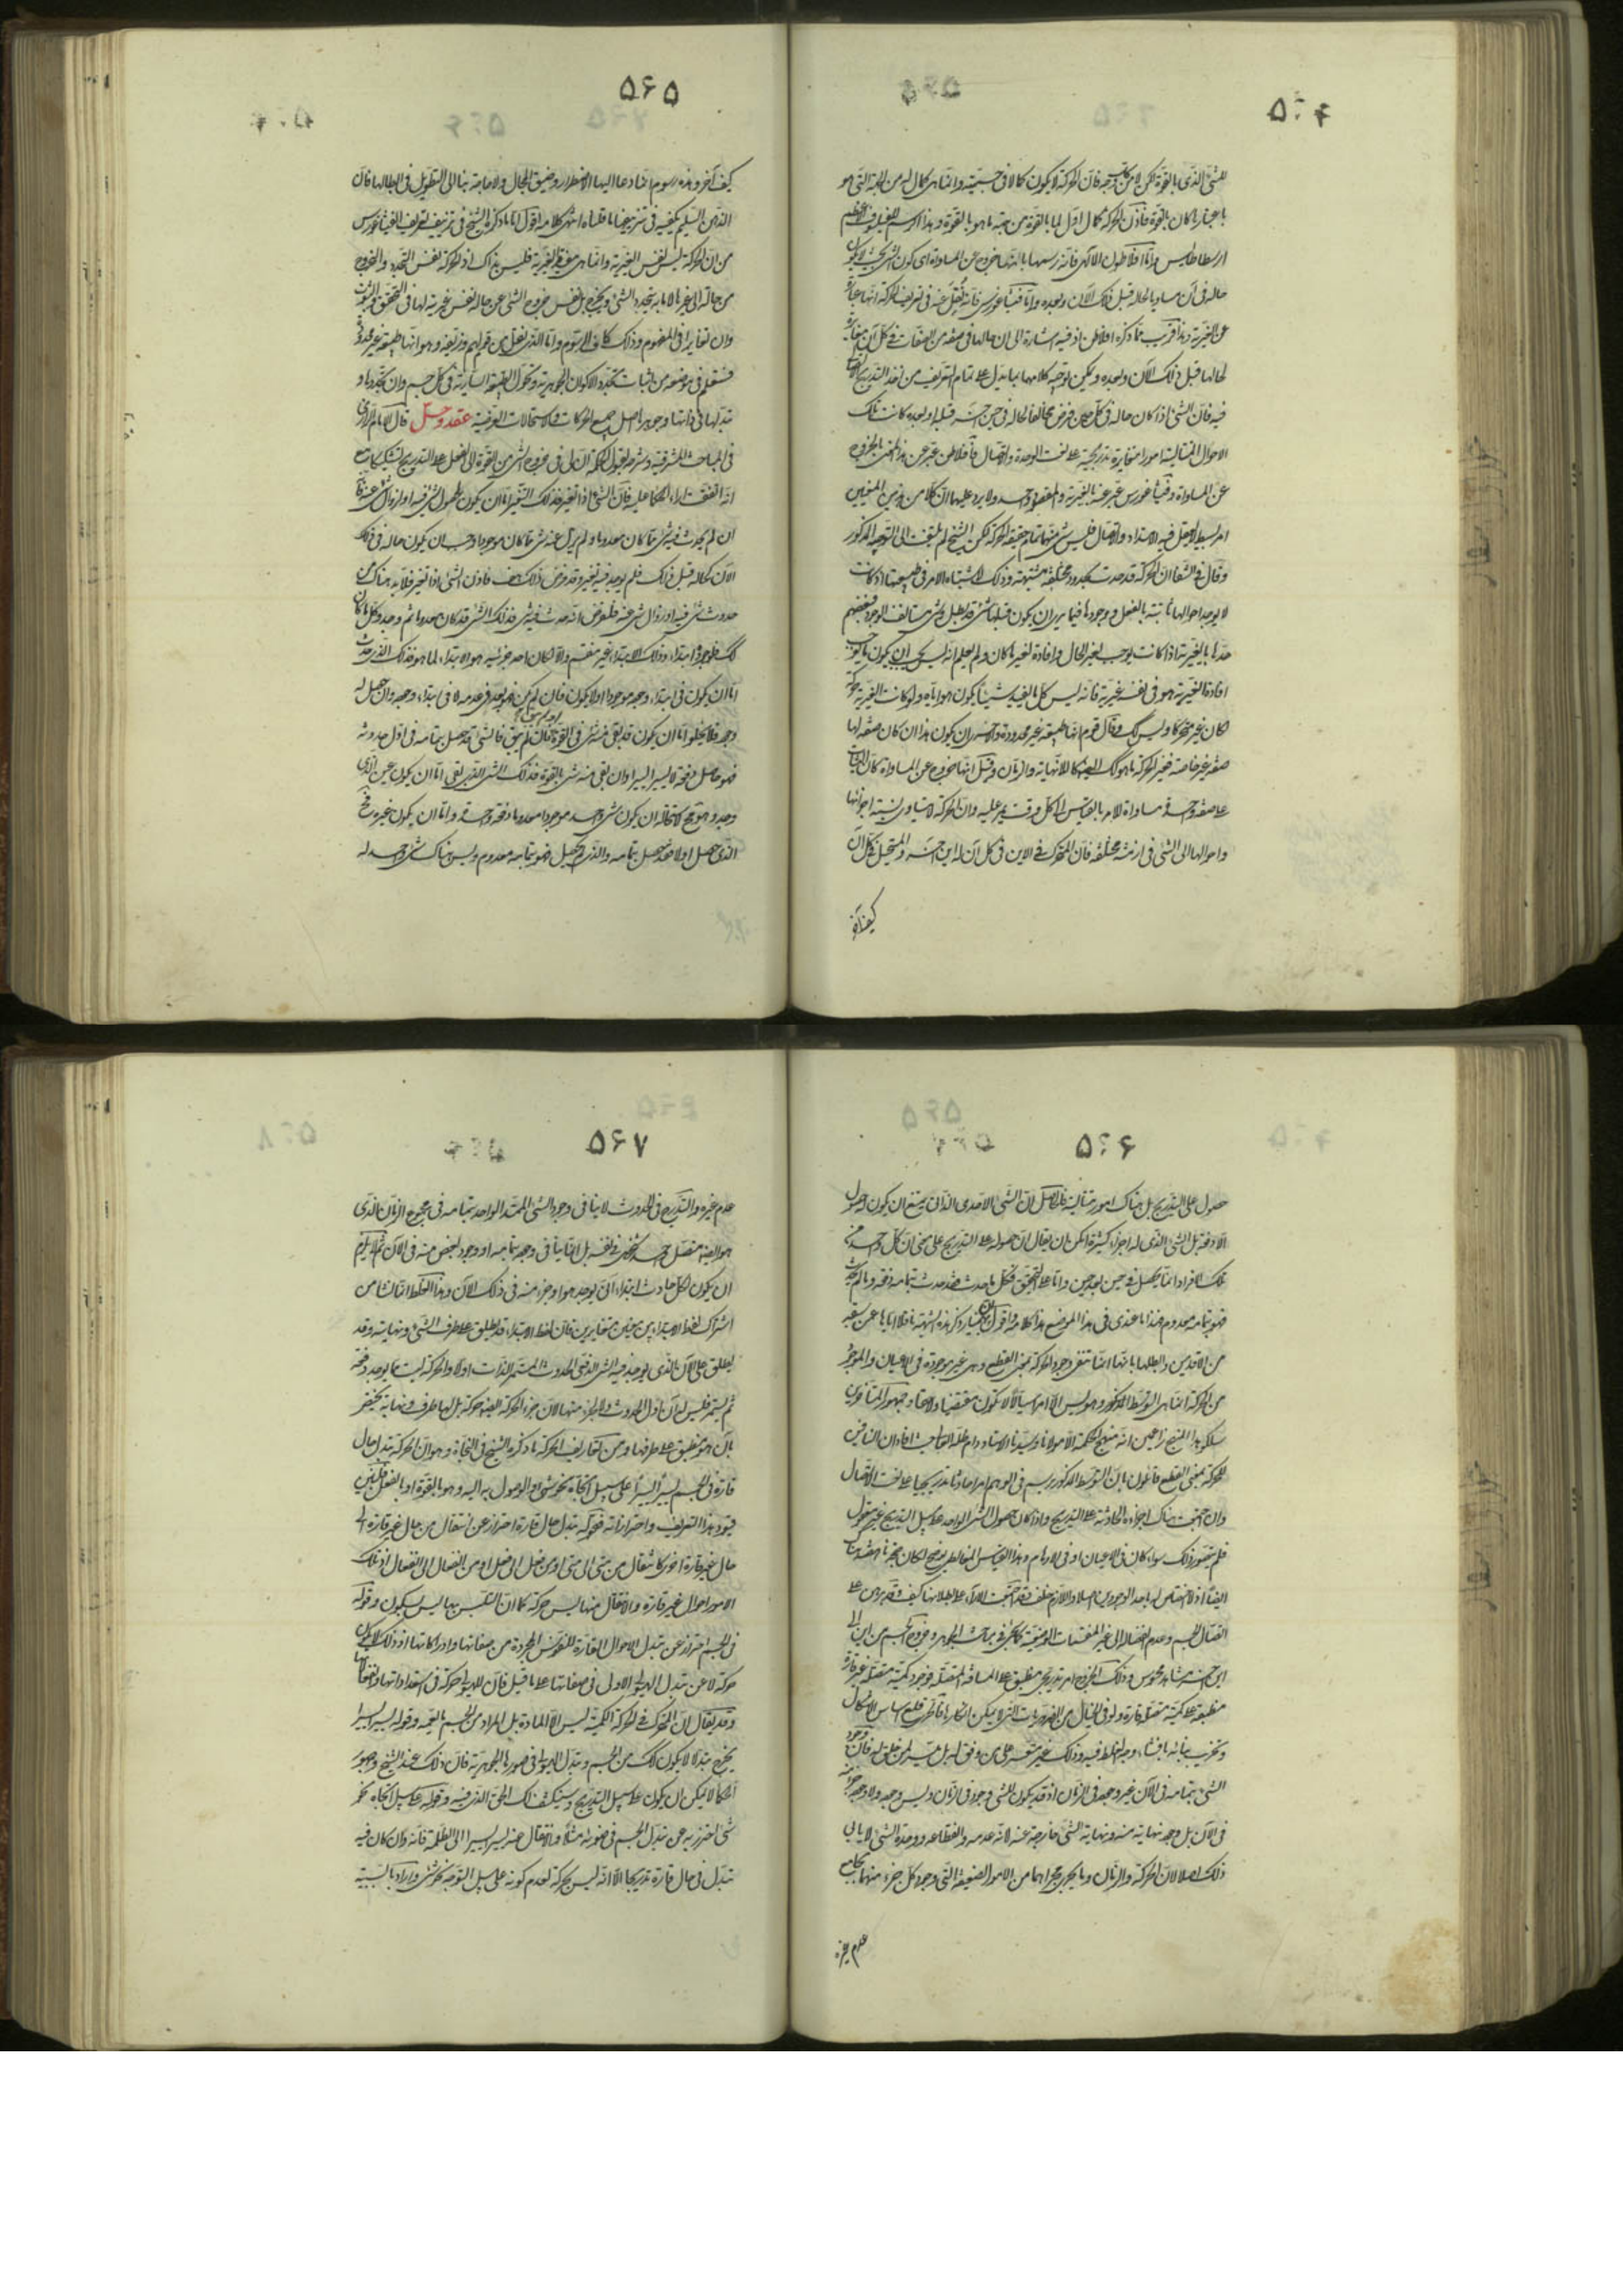 ۵۶۴
للشئ الذى بالقوة لكن لا من كل وجه فان الحركة لا يكون كمالا فى جسميته وانما هى كمال له من الجهة التى هو
باعتبارها كان بالقوة فاذن الحركة كمال اول لما بالقوة من جهة ما هو بالقوة وهذا الرسم للفيلسوف الاعظم
ارسطاطاليس واما افلاطون الالهى فانه رسمها بانها خروج عن المساواة اى كون الشئ بحيث لا يكون
حاله فى آن مساويا لحاله قبل ذلك الآن وبعده واما فيثاغورس فانه نقل عنه فى تعريف الحركة انها عبارة
عن الغيرية وهذا قريب مما ذكره افلاطن اذ فيه اشارة الى ان حالها فى صفة من الصفات فى كل آن مغايرة
لحالها قبل ذلك الآن وبعده ويمكن توجيه كلامهما بما يدل على تمام التعريف من اخذ التدريج الاتصالى
فيه فان الشئ اذا كان حاله فى كل حين فرض مخالفا لحاله فى حين آخر قبله او بعده كانت تلك
الاحوال المتتالية امورا متغايرة تدريجية على نعت الوحدة والاتصال فافلاطن عبر عن هذا المعنى بالخروج
عن المساواة وفيثاغورس عبر عنه بالغيرية والمقصود واحد ولا يرد عليهما ان كلا من هذين المعنيين
امر بسيط لا يعقل فيه الامتداد والاتصال فليس شئ منهما تمام حقيقة الحركة لكن الشيخ لم يلتفت الى التوجيه المذكور
وقال فى الشفا ان الحركة قد حدت بحدود مختلفة مشتبهة وذلك لاشتباه الامر فى طبيعتها اذ كانت
لا يوجد احوالها ثابتة بالفعل ووجودها فيما يرى ان يكون قبلها شئ قد بطل وشئ مستأنف الوجود فبعضهم
حدها بالغيرية اذا كانت يوجب لغير الحال وافادة لغير ما كان ولم يعلم انه ليس يجب ان يكون ما يوجب
افادة الغيرية هو فى نفسه غيرية فانه ليس كل ما يفيد شيئا يكون هو اياه ولو كانت الغيرية حركة
لكان كل غير متحركا وليس كك وقال قوم انها طبيعة غير محدودة واحرى ان يكون هذا ان كان صفة لها
صفة غير خاصة فغير الحركة ما هو كك ايضا كاللانهاية والزمان وقيل انها خروج عن المساواة كان الثبات
على صفة واحدة مساواة للامر بالقياس الى كل وقت يمر عليه وان الحركة لا يتساوى نسبة اجزائها
واحوالها الى الشئ فى ازمنة مختلفة فان المتحرك فى الاين فى كل آن له اين آخر والمستحيل له فى كل آن
كيف آخر
۵۶۵
كيف آخر وهذه رسوم انما دعا اليها الاضطرار وضيق المجال ولا حاجة بنا الى التطويل فى ابطالها فان
الذهن السليم يكفيه فى تزييفها ما قلناه انتهى كلامه اقول اما ما ذكره الشيخ فى تزييف تعريف الفيثاغورس
من ان الحركة ليس نفس الغيرية وانما هى مفيد الغيرية فليس بذاك اذ الحركة نفس التجدد والخروج
من حالة الى غيرها لا ما به يتجدد الشئ ويخرج بل نفس خروج الشئ عن حاله نفس غيرية لها فى التحقق والثبوت
وان تغايرا فى المفهوم وذلك كاف فى الرسوم واما الذى نقل من قولهم وزيفه وهو انها طبيعة غير محدودة
فستعلم فى موضعه من اثبات تجدد الاكوان الجوهرية وتحول الطبيعة السارية فى كل جسم وان تجددها و
تبدلها فى ذاتها وجوهرها اصل جميع الحركات والاستحالات العرضية عقد وحل قال الامام الرازى
فى المباحث المشرقية وشرحه لعيون الحكمة ان لى فى خروج الشئ من القوة الى الفعل على التدريج تشكيكا مع
انه اتفقت آراء الحكماء عليه فان الشئ اذا تغير فذلك التغير اما ان يكون لحصول شئ فيه او لزوال شئ عنه فانه
ان لم يحدث فيه شئ مما كان معدوما ولم يزل عنه شئ مما كان موجودا وجب ان يكون حاله فى ذلك
الآن كحاله قبل ذلك فلم يوجد فيه تغير وقد فرض ذلك هف فاذن الشئ اذا تغير فلا بد هناك من
حدوث شئ فيه او زوال شئ عنه فلنفرض انه حدث فيه شئ فذلك الشئ قد كان معدوما ثم وجد وكل ما كان
كك فلوجوده ابتداء وذلك الابتداء غير منقسم والا لكان احد جزئيه هو الابتداء لما هو فذلك الذى حدث
اما ان يكون فى ابتداء وجوده موجودا اولا يكون فان لم يكن فهو بعد فى عدمه لا فى ابتداء وجوده وان حصل له
وجود فلا يخلو اما ان يكون قد بقى منه شئ فى القوة او لم يبق فان لم يبق فالشئ قد حصل بتمامه فى اول حدوثه
فهو حاصل دفعة لا يسيرا يسيرا وان بقى منه شئ بالقوة فذلك الشئ الذى بقى اما ان يكون عين الذى
وجد وهو مح لاستحالة ان يكون شئ واحد موجودا معدوما دفعة واحدة واما ان يكون غيره فح
الذى حصل اولا فقد حصل بتمامه والذى لم يحصل فهو بتمامه معدوم وليس هناك شئ واحد له
۵۶۶
حصول على التدريج بل هناك امور متتالية فالحاصل ان الشئ الاحدى الذات يمتنع ان يكون له حصول
الا دفعة بل الشئ الذى له اجزاء كثيرة امكن ان يقال ان حصوله على التدريج على معنى ان كل واحد من
تلك الافراد انما يحصل فى حين بعد حين واما على التحقيق فكل ما حدث فقد حدث بتمامه دفعة وما لم يحدث
فهو بتمامه معدوم فهذا ما عندى فى هذا الموضع هذا كلامه اقول ان بهمنيار ذكر هذه الشبهة ناقلا اياها عن سبقه
من الاقدمين وابطلها بانها انما تنفى وجود الحركة بمعنى القطع وهى غير موجودة فى الاعيان والموجود
من الحركة انما هى التوسط المذكور وهو ليس الا امرا سيالا لا يكون منقضيا ولا حاصلا وجمهور المتأخرين
سلكوا هذا المنهج زاعمين انه منهج الحكمة الا مولانا وسيدنا الاستاد دام ظله العالى حيث افاد ان النافين
للحركة بمعنى القطع قائلون بان التوسط المذكور يرسم فى الوهم امرا حادثا تدريجيا على نعت الاتصال
وان اجتمعت هناك اجزاءه الحادثة على التدريج واذا كان حصول الشئ الواحد على سبيل التدريج غير معقول
فلم يتصور ذلك سواء كان فى الاعيان او فى الاوهام وهذا القياس المغالطى لو صح لكان حجة ناهضة هناك
ايضا اذ لا اختصاص له باحد الوجودين اصلا والازم خلف فقد اجتمعت الآراء على بطلانها كيف وقد برهن على
اتصال الجسم وعدم انفصاله الى غير المنقسمات الوضعية كما يجئ فى مباحث الجوهر وخروج الجسم من اين الى
اين آخر مشاهد محسوس وذلك الخروج امر تدريجى منطبق على المسافة المتصلة فوجود كمية متصلة غير قارة
منطبقة على كمية متصلة قارة ولو فى الخيال من الضروريات التى لا يمكن انكارها فالحرى قلع اساس الاشكال
وتخريب بنائه بافشاء وجه الغلط فيه وذلك غير متعسر على من وفق له بل ميسر لمن خلق له فان وجود
الشئ بتمامه فى الآن غير وجوده فى الزمان اذ قد يكون للشئ وجود فى الزمان وليس وجوده ولا وجود جزء منه
فى الآن بل وجود نهايته منه ونهاية الشئ خارجة عنه لانه عدمه وانقطاعه ووحدة الشئ لا يأبى
ذلك اصلا لان الحركة والزمان وما يجرى مجراهما من الامور الضعيفة التى وجود كل جزء منهما يجامع
عدم غيره
۵۶۷
عدم غيره والتدريج فى الحدوث لا ينافى وجود الشئ الممتد الواحد بتمامه فى مجموع الزمان الذى
هو ايضا متصل واحد شخصى فى نفسه بل انما ينافى وجوده بتمامه او وجود بعض منه فى الآن ثم لا يلزم
ان يكون لكل حادث ابتداء آنى يوجد هو او جزء منه فى ذلك الآن وهذا الغلط انما نشا من
اشتراك لفظ الابتداء بين معنيين متغايرين فان لفظ الابتداء قد يطلق على طرف الشئ ونهايته وقد
يطلق على الآن الذى يوجد فيه الشئ الدفعى الحدوث المستمر الذات اولا والحركة ليست مما يوجد دفعة
ثم يستمر فليس له آن اول الحدوث ولا لجزء منها لان جزء الحركة ايضا حركة بل لها طرف ونهاية يختص
بآن هو منطبق على طرفها ومن تعاريف الحركة ما ذكره الشيخ فى النجاة وهو ان الحركة تبدل حال
قارة فى الجسم يسيرا يسيرا على سبيل اتجاه نحو شئ والوصول به اليه وهو بالقوة او بالفعل فلنبين
قيود هذا التعريف واحترازاته فقوله تبدل حال قارة احتراز عن انتقال من حال غير قارة الى
حال غير قارة اخرى كانتقال من متى الى متى او من فعل الى فعل او من انفعال الى انفعال اذ تلك
الامور احوال غير قارة والانتقال منها ليس حركة كما ان التلبس بها ليس بسكون وقوله
فى الجسم احتراز عن تبدل الاحوال القارة للنفوس المجردة من صفاتها وادراكاتها اذ ذلك لا يكون
حركة لا عن تبدل الهيولى الاولى فى صفاتها على ما قيل فان للهيولى حركة فى استعداداتها وانفعالاتها
وقد يقال ان المتحرك فى الحركة الكمية ليس الا المادة بل المراد من الجسم ما يعمه وقوله يسيرا يسيرا
يخرج تبدلا لا يكون كك من الجسم وتبدل الهيولى فى صورها الجوهرية فان ذلك عند الشيخ وجمهور
الحكماء لا يمكن ان يكون على سبيل التدريج وسينكشف لك الحق الذى فيه وقوله على سبيل اتجاه نحو
شئ احترز به عن تبدل الجسم فى ضوئه مثلا والانتقال منه يسيرا يسيرا الى الظلمة فانه وان كان فيه
تبدل فى حال قارة تدريجا الا انه ليس بحركة لعدم كونه على سبيل التوجه نحو شئ واراد بالسببية